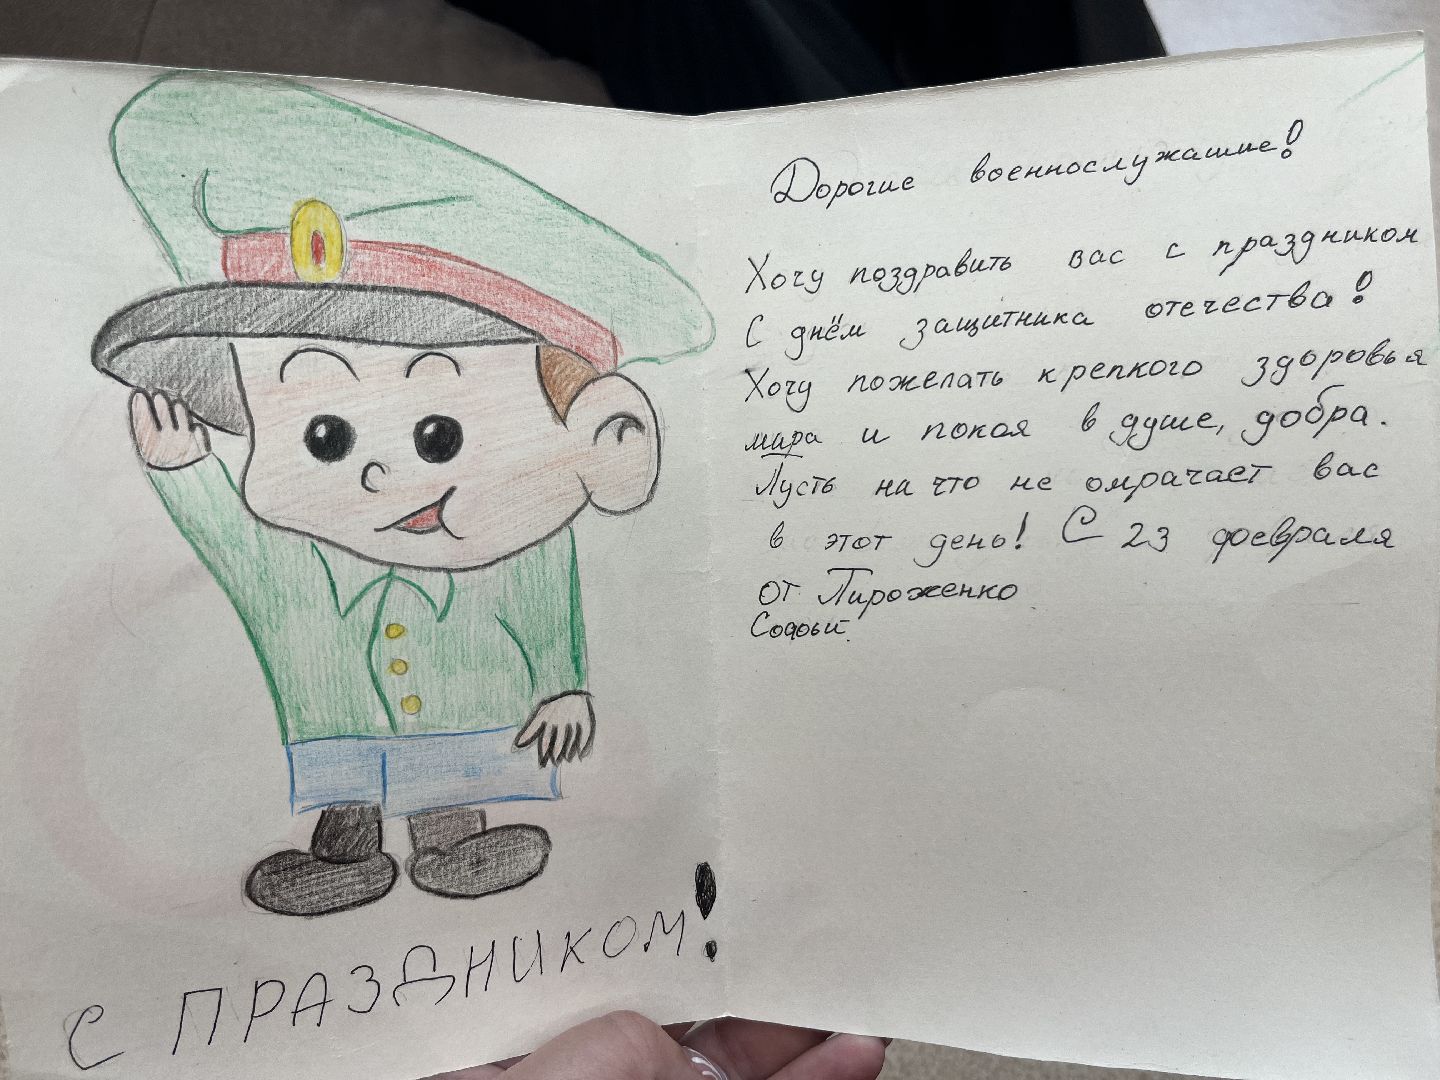 С ПРАЗДНИКОМ!
Дорогие военнослужащие!
Хочу поздравить вас с праздником
С днём защитника отечества!
Хочу пожелать крепкого здоровья
мира и покоя в душе, добра.
Пусть на что не омрачает вас
в этот день! С 23 февраля
от Пироженко
Софьи.